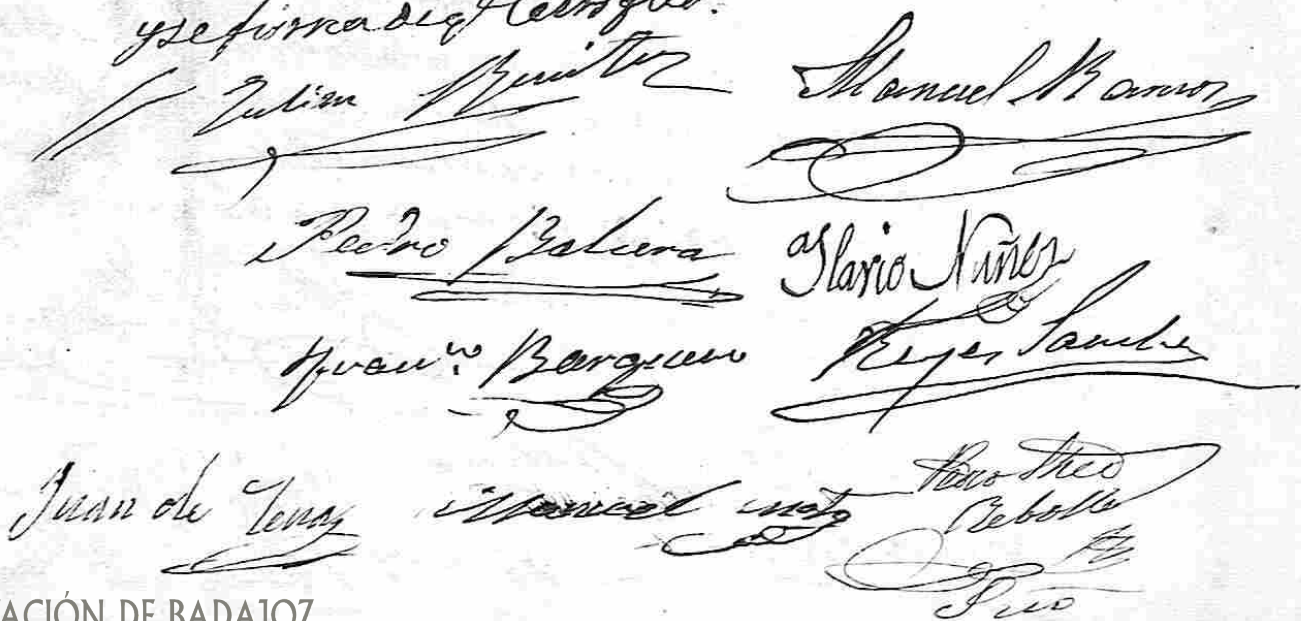 y se firma de q.e Certifico.
Julian Benitez Manuel Ramos
Pedro Balsera Ylario Nuñez
Fran.co Barquero Reyes Sanche
Juan de Tena Manuel
Pedro Rebollo
Srio
ACIÓN DE BADAJOZ